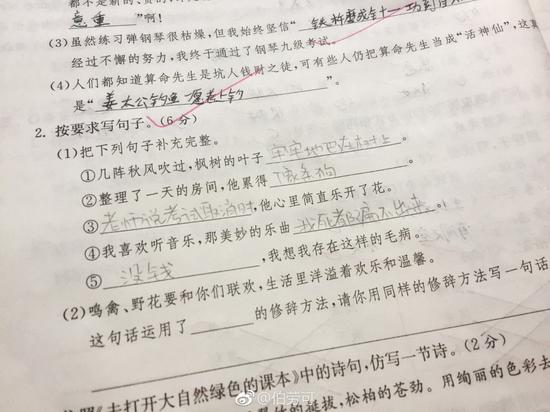 意重"啊!
(3)虽然练习弹钢琴很枯燥,但我始终坚信"铁杵磨成针,功到自
经过不懈的努力,我终于通过了钢琴九级考试。
(4)人们都知道算命先生是坑人钱财之徒,可有些人仍把算命先生当成"活神仙",这真
是"姜太公钓鱼愿者上钓"。
2. 按要求写句子。(6分)
(1)把下列句子补充完整。
①几阵秋风吹过,枫树的叶子牢牢地巴在树上。
②整理了一天的房间,他累得像条狗
③老师说考试取消时,他心里简直乐开了花。
④我喜欢听音乐,那美妙的乐曲我死都品不出来。
⑤没钱,我想我存在这样的毛病。
(2)鸣禽、野花要和你们联欢,生活里洋溢着欢乐和温馨。
这句话运用了______的修辞方法,请你用同样的修辞方法写一句话
《去打开大自然绿色的课本》中的诗句,仿写一节诗。(2分)
的挺拔,松柏的苍劲。用绚丽的色彩去
@伯劳可